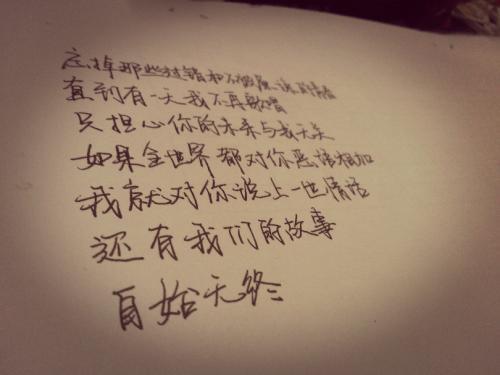 忘掉那些对错和不
直到有一天我不再歌唱
只担心你的未来与我无关
如果全世界都对你恶语相加
我就对你说上一世情话
还有我们的故事
自始无终